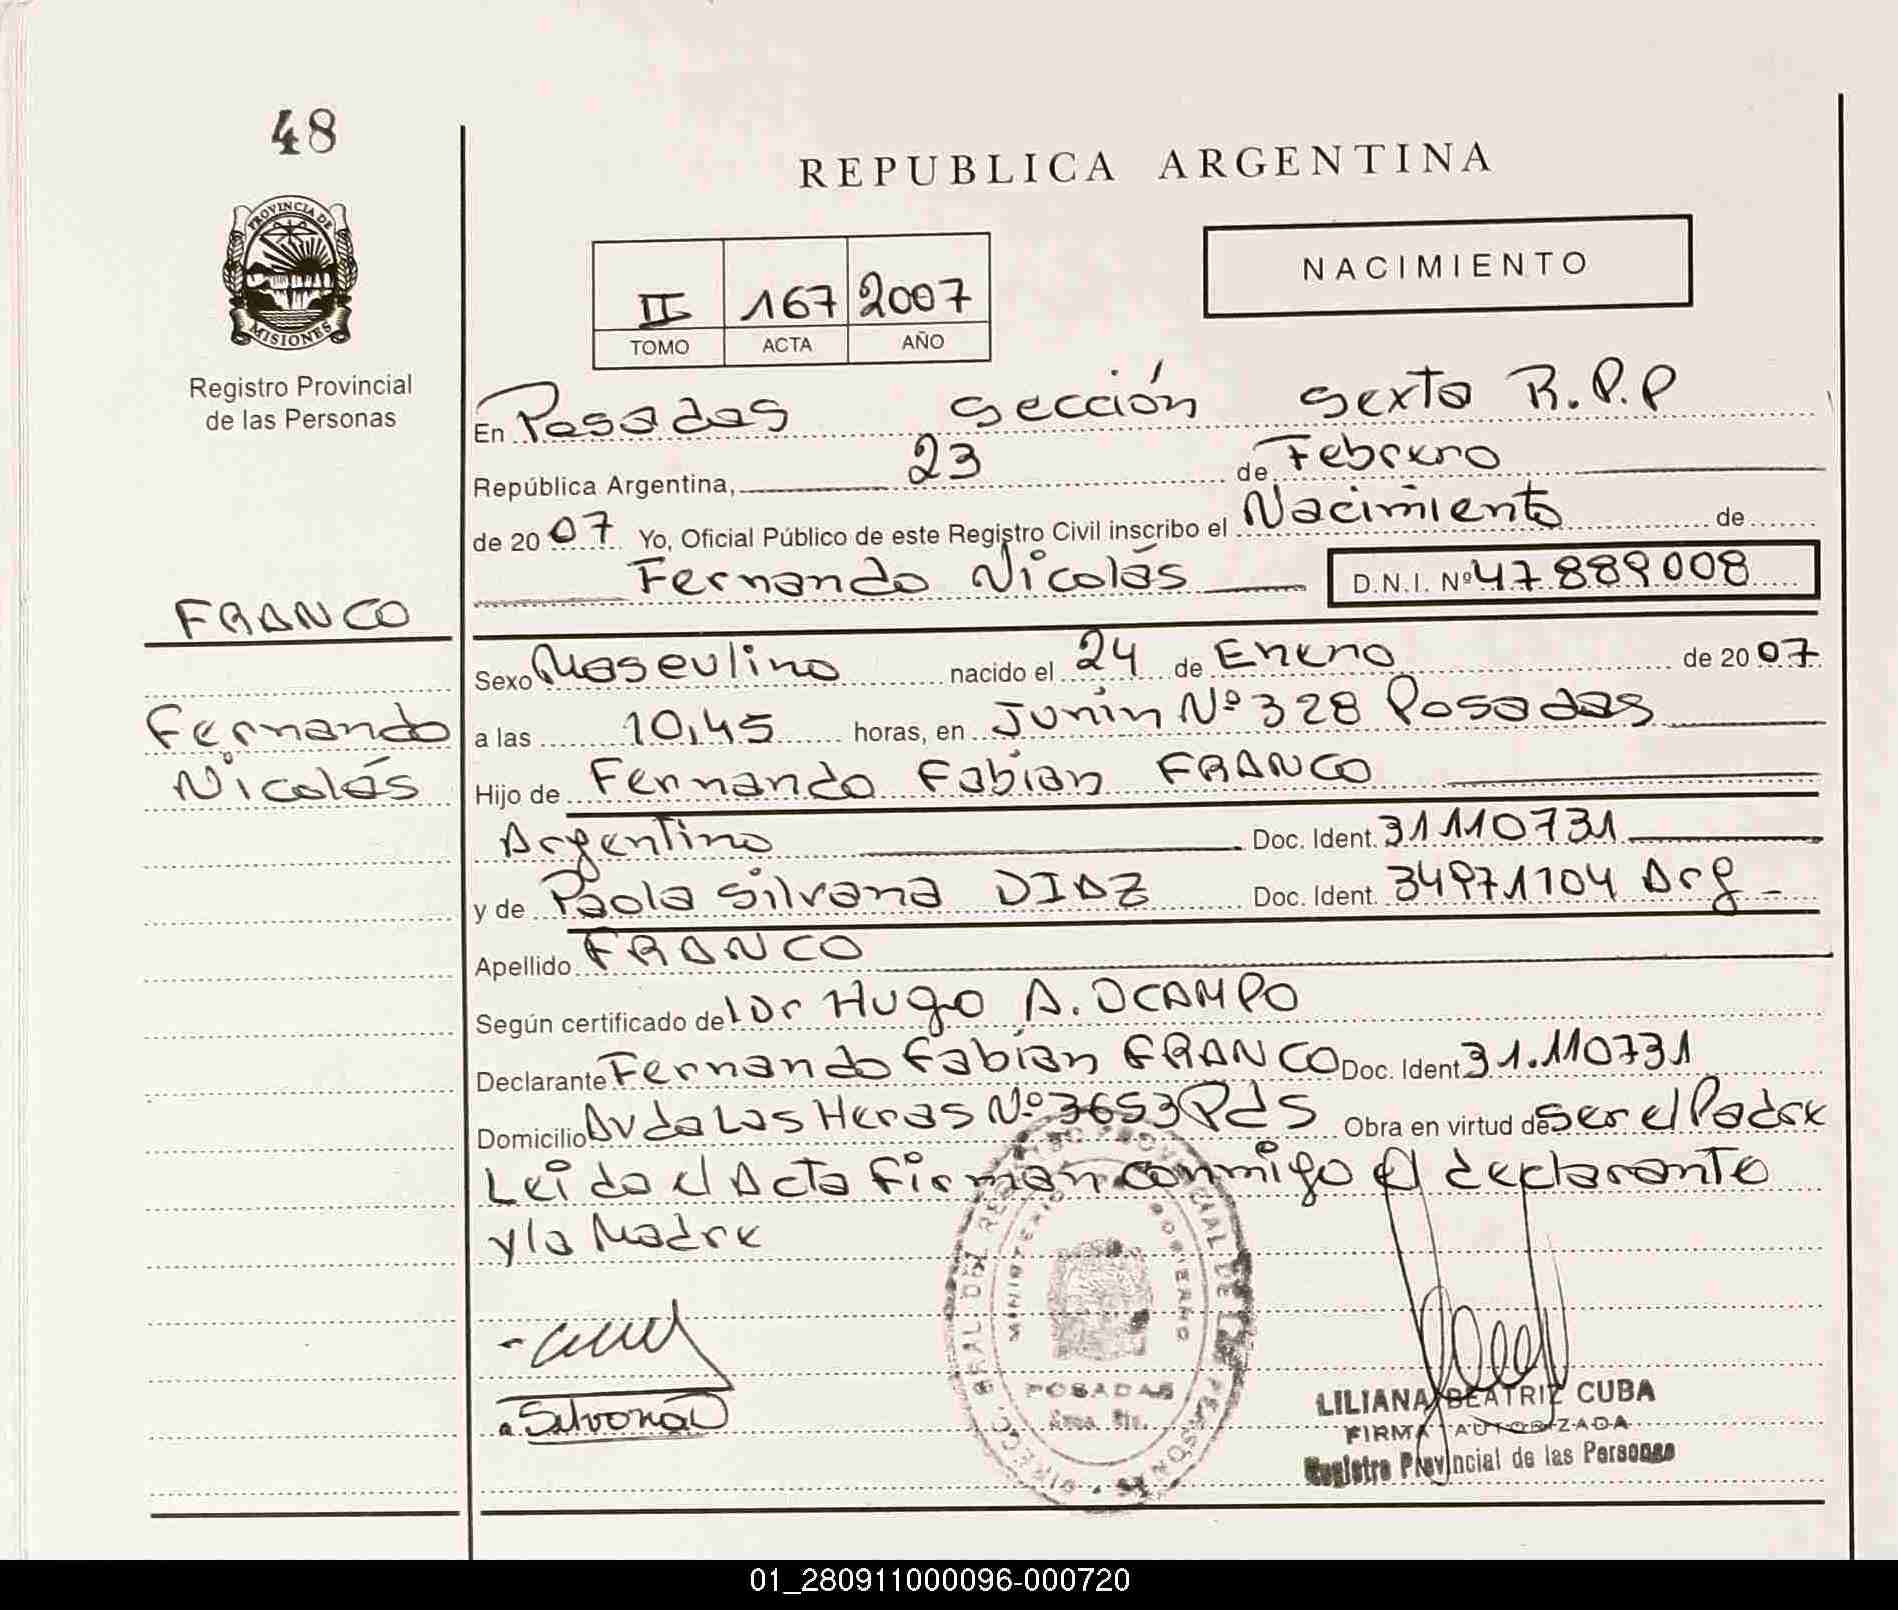 48
REPUBLICA ARGENTINA
PROVINCIA DE
MISIONES
Registro Provincial
de las Personas
NACIMIENTO
II 167 2007
TOMO ACTA AÑO
En Posadas sección sexta R.P.P
República Argentina, 23 de Febrero
de 2007 Yo, Oficial Público de este Registro Civil inscribo el Nacimiento de
Fernando Nicolás D.N.I. Nº 47.889.008
FRANCO
Fernando
Nicolás
Sexo Masculino nacido el 24 de Enero de 2007
a las 10,45 horas, en Junín Nº 328 Posadas
Hijo de Fernando Fabian FRANCO
Argentino Doc. Ident. 31110731
y de Paola Silvana DIAZ Doc. Ident. 34971104 Arg
Apellido FRANCO
Según certificado del Dr Hugo A. OCAMPO
Declarante Fernando Fabián FRANCO Doc. Ident 31.110731
Domicilio Avda Las Heras Nº 3653 Pds Obra en virtud de ser el Padre
Leida el Acta firman conmigo el declarante
y la Madre
DIRECC. GRAL. DEL REGISTRO PROVINCIAL DE LAS PERSONAS
MINISTERIO GOBIERNO
POSADAS
LILIANA BEATRIZ CUBA
FIRMA AUTORIZADA
Registro Provincial de las Personas
01_280911000096-000720